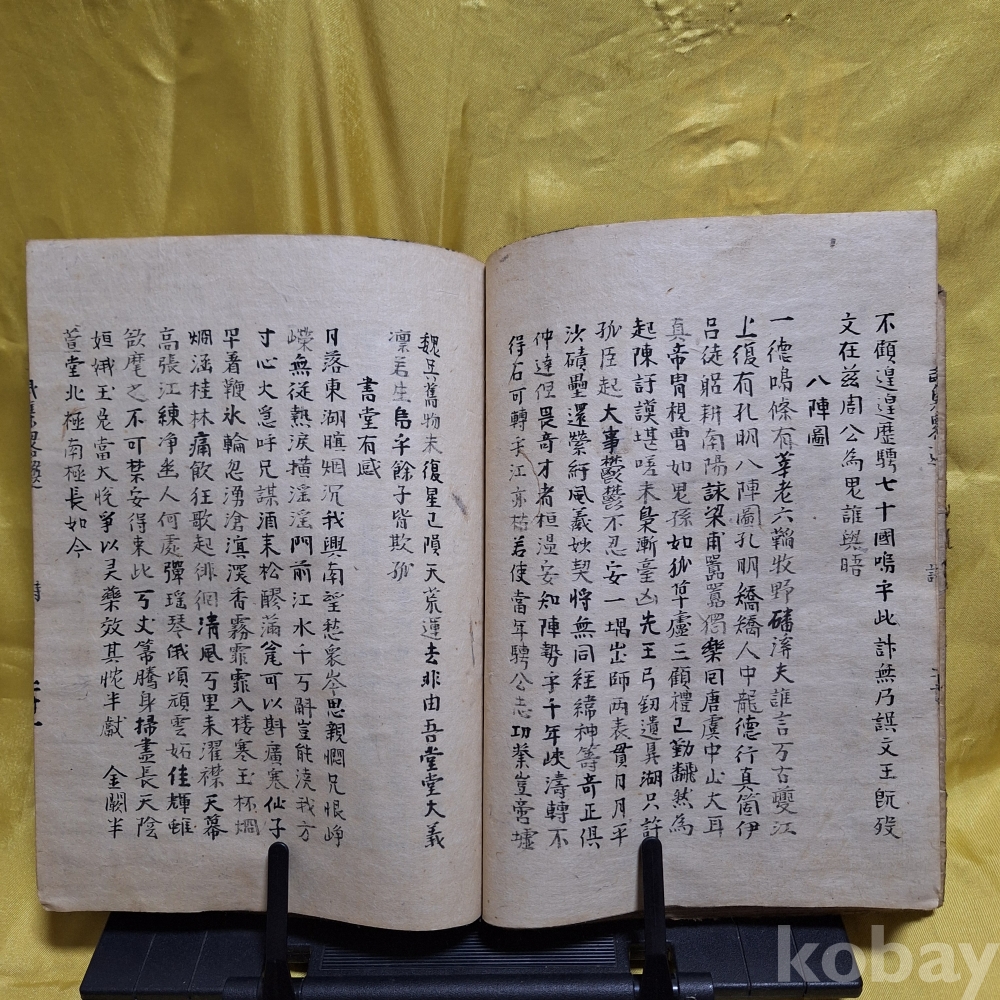 不顧遑遑歷聘七十國嗚乎此計無乃誤文王旣歿
文在玆周公爲鬼誰與晤
八陣圖
一德鳴條有莘老六韜牧野磻溪夫誰言万古夔江
上復有孔明八陣圖孔明矯矯人中龍德行眞箇伊
呂徒躬耕南陽誄梁甫囂囂獨樂同唐虞中山大耳
眞帝冑視曹如鬼孫如狐草廬三顧禮已勤飜然爲
起陳訏謨堪嗟未梟漸臺凶先王弓釰遺鼎湖只許
孤臣起大事鬱鬱不忍安一堣出師兩表貫日月平
沙磧壘還縈紆風義妙契將無同經緯神籌奇正俱
仲達但畏奇才者桓溫安知陣勢乎千年峽濤轉不
得石可轉乎江亦枯若使當年騁公志功業豈啻墟
魏且舊物未復星已隕天荒運去非由吾堂堂大義
凜若生烏乎餘子皆欺孤
書堂有感
月落東湖暝烟沉我興南望愁衆岑思親憫兄恨崢
嶸無從熱淚橫淫淫門前江水千万斛豈能澆我方
寸心大急呼兄謀酒來松醪蒲瓮可以斟廣寒仙子
罕着鞭氷輪忽湧滄溟深香霧霏霏入樓寒玉杯爛
爛涵桂林痛飮狂歌起徘徊淸風万里來濯襟天幕
高張江練淨坐人何處彈瑤琴俄頃頑雲妬佳輝雖
欲麾之不可禁安得東此万丈箒騰身掃盡長天陰
姮娥玉兎當大悅爭以灵藥效其忱半獻 金闕半
萱堂北極南極長如今